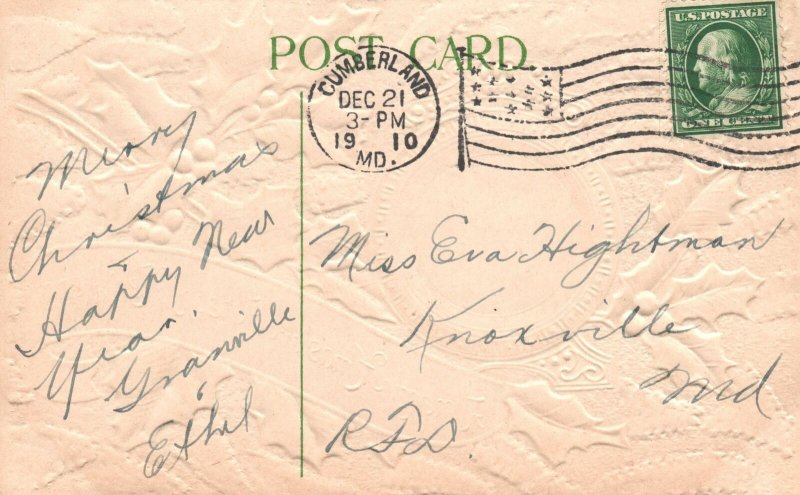 POST CARD.
CUMBERLAND
DEC 21
3-PM
19 10
MD.
U.S. POSTAGE
ONE CENT
Merry
Christmas
Happy New
Year.
Granville
&
Ethel
Miss Eva Hightman
Knoxville
Md
R.F.D.